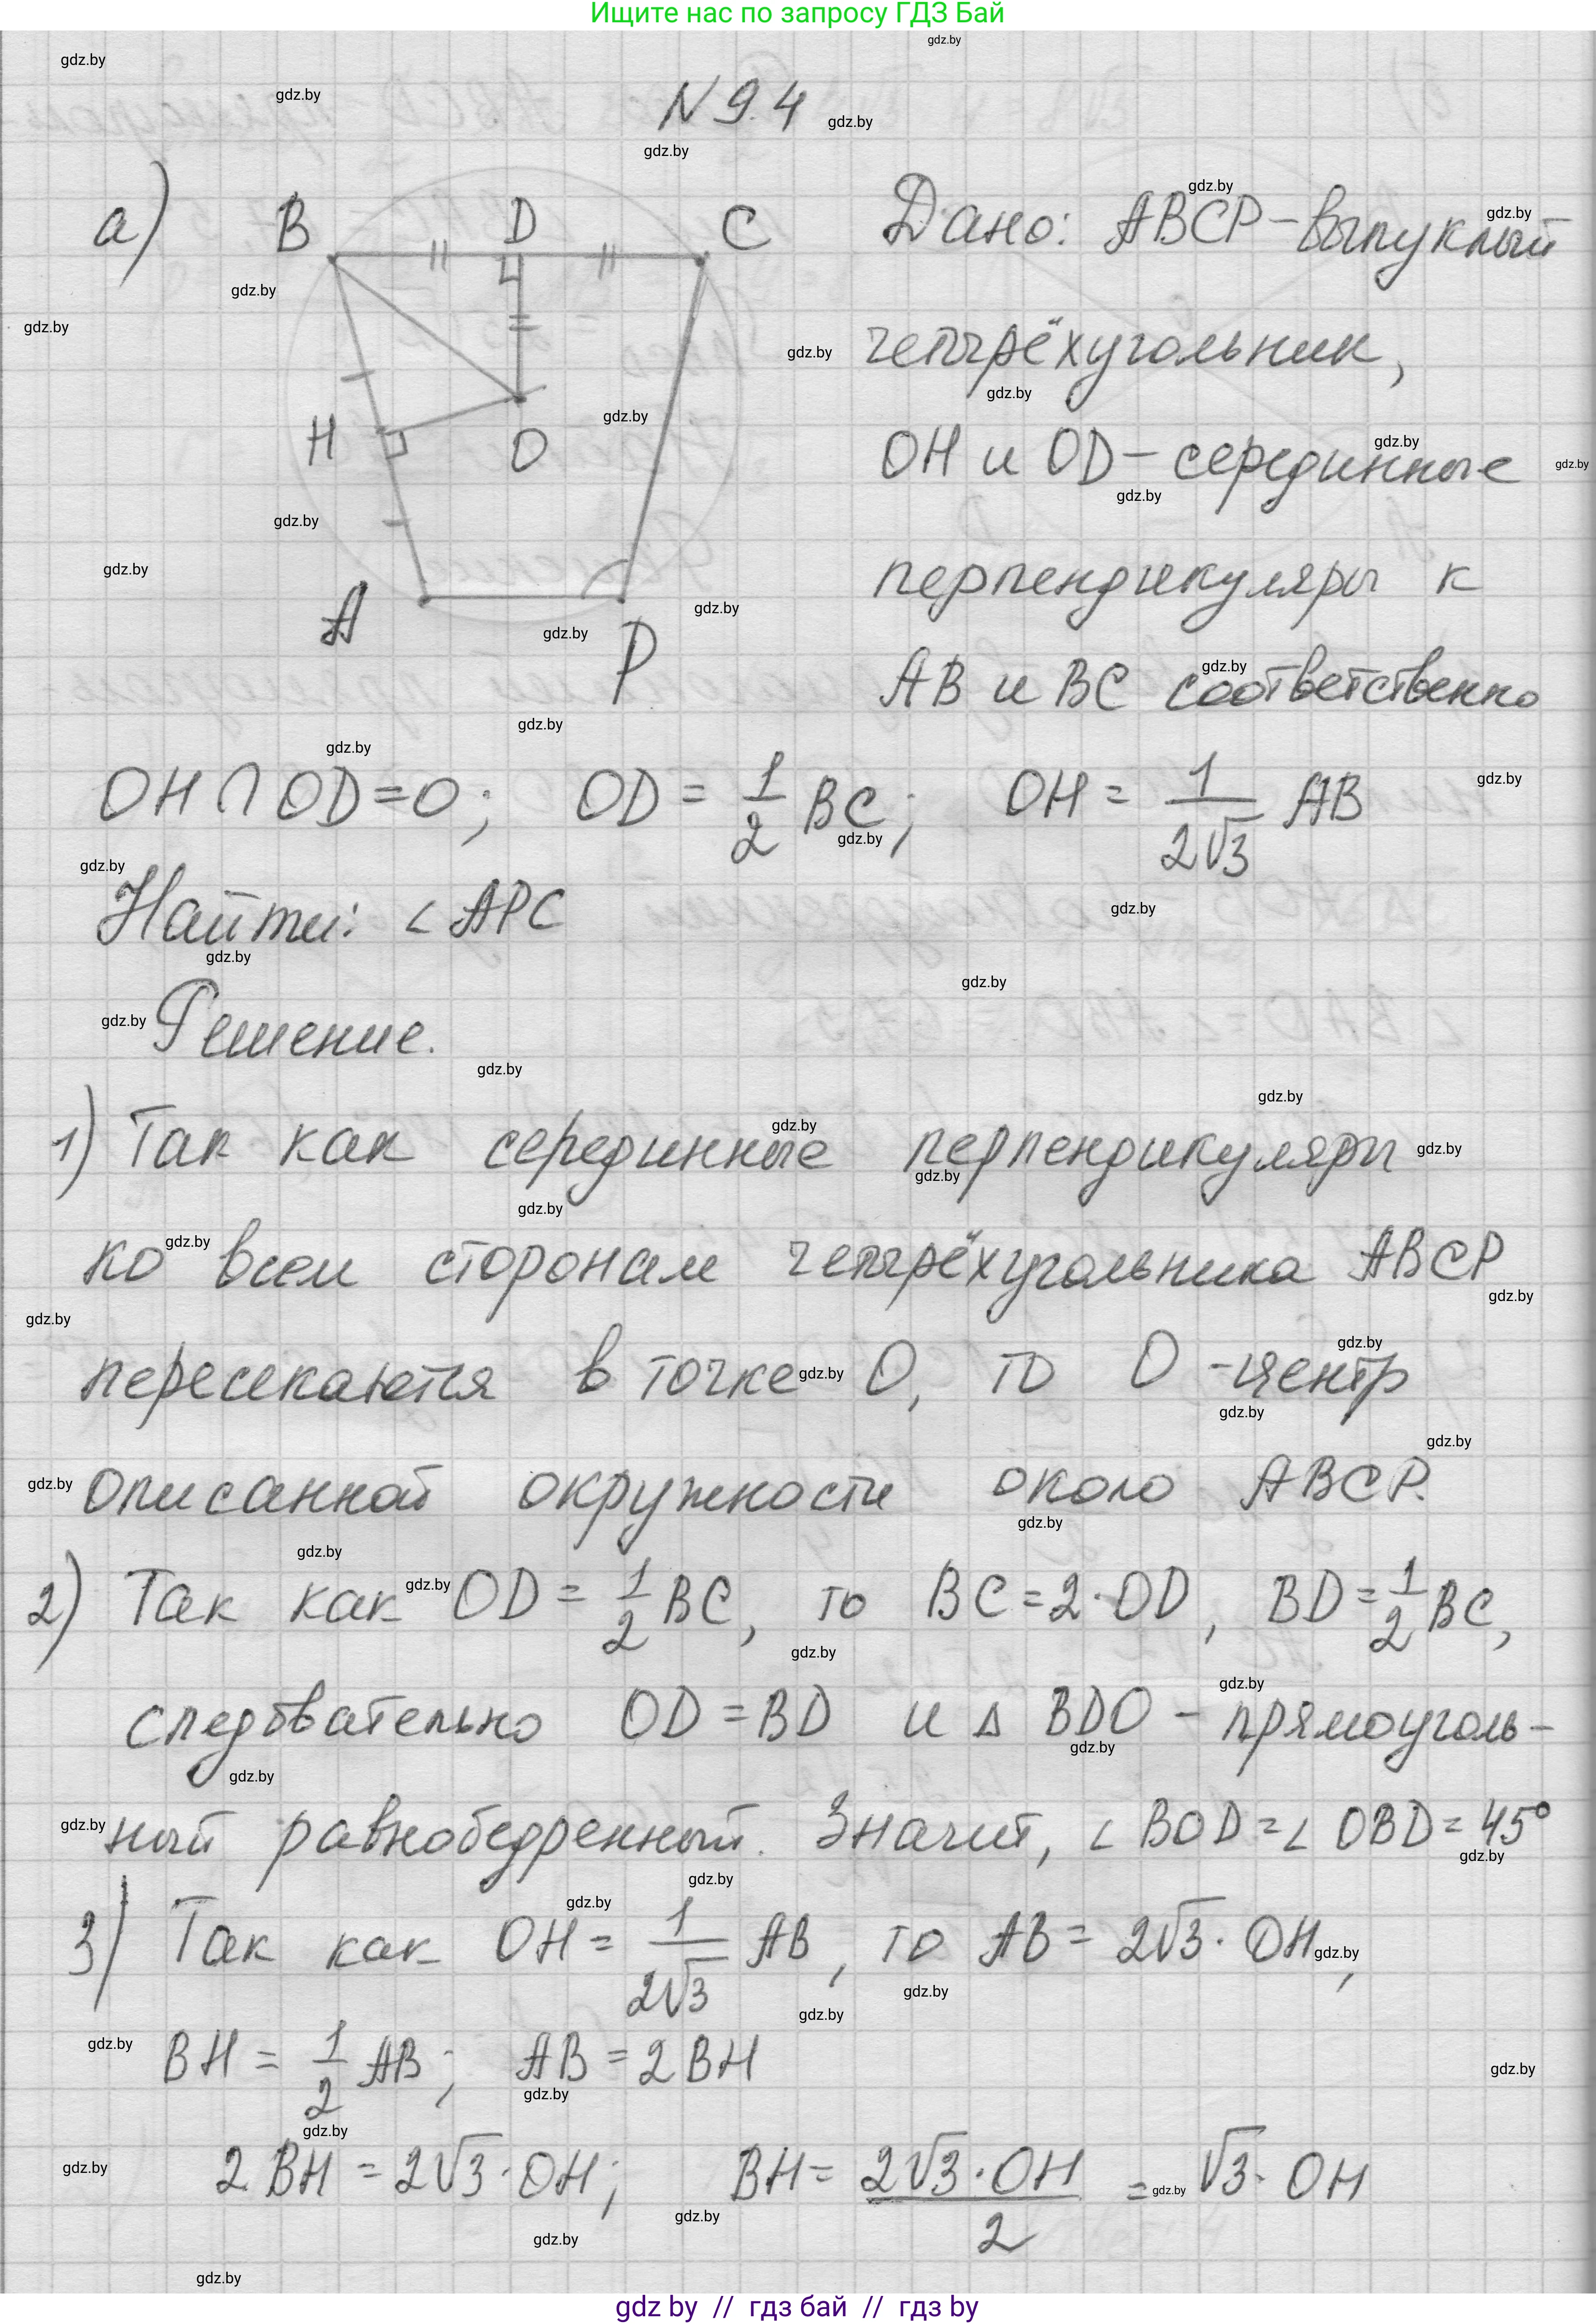 Ищите нас по запросу ГДЗ Бай
N 9.4
а) B D C
H O
A P
Дано: ABCP - выпуклый
четырёхугольник,
OH и OD - серединные
перпендикуляры к
AB и BC соответственно
OH ∩ OD = O; OD = 1/2 BC; OH = 1/(2√3) AB
Найти: ∠ APC
Решение.
1) Так как серединные перпендикуляры
ко всем сторонам четырёхугольника ABCP
пересекаются в точке O, то O - центр
описанной окружности около ABCP.
2) Так как OD = 1/2 BC, то BC = 2·OD, BD = 1/2 BC,
следовательно OD = BD и Δ BDO - прямоуголь-
ный равнобедренный. Значит, ∠ BOD = ∠ OBD = 45°
3) Так как OH = 1/(2√3) AB, то AB = 2√3 · OH,
BH = 1/2 AB; AB = 2 BH
2 BH = 2√3 · OH; BH = (2√3 · OH)/2 = √3 · OH
gdz by // гдз бай // гдз by